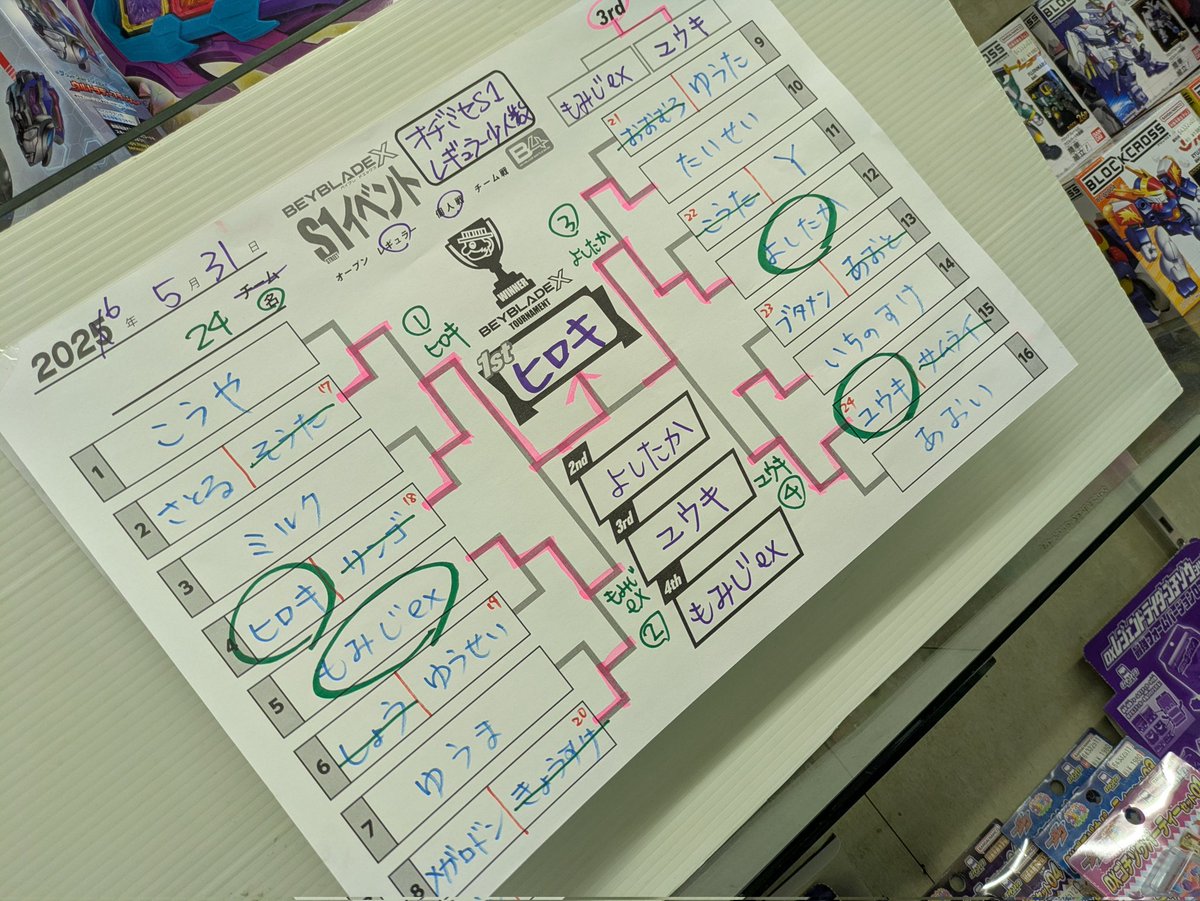 2026年 5月 31日
24 名
チーム
BEYBLADE X
S1イベント
オープン レギュラー 個人戦 チーム戦
オヂミセS1
レギュラー少人数
B4
WINNER
BEYBLADE X
TOURNAMENT
1st
ヒロキ
2nd
よしたか
3rd
ユウキ
4th
もみじex
① ヒロキ
② もみじex
③ よしたか
④ ユウキ
3rd
もみじex ユウキ
1 こうや
2 さとる そうた 17
3 ミルク
4 ヒロキ サンゴ 18
5 もみじex
6 しょう ゆうせい 19
7 ゆうま
8 メガロドン きょうすけ 20
21 おおむろ ゆうた 9
たいせい 10
22 こうた Y 11
よしたか 12
23 ブタメン あおと 13
いちのすけ 14
24 ユウキ サムライ 15
あおい 16
BLOCKCROSS
BLOCKCROSS